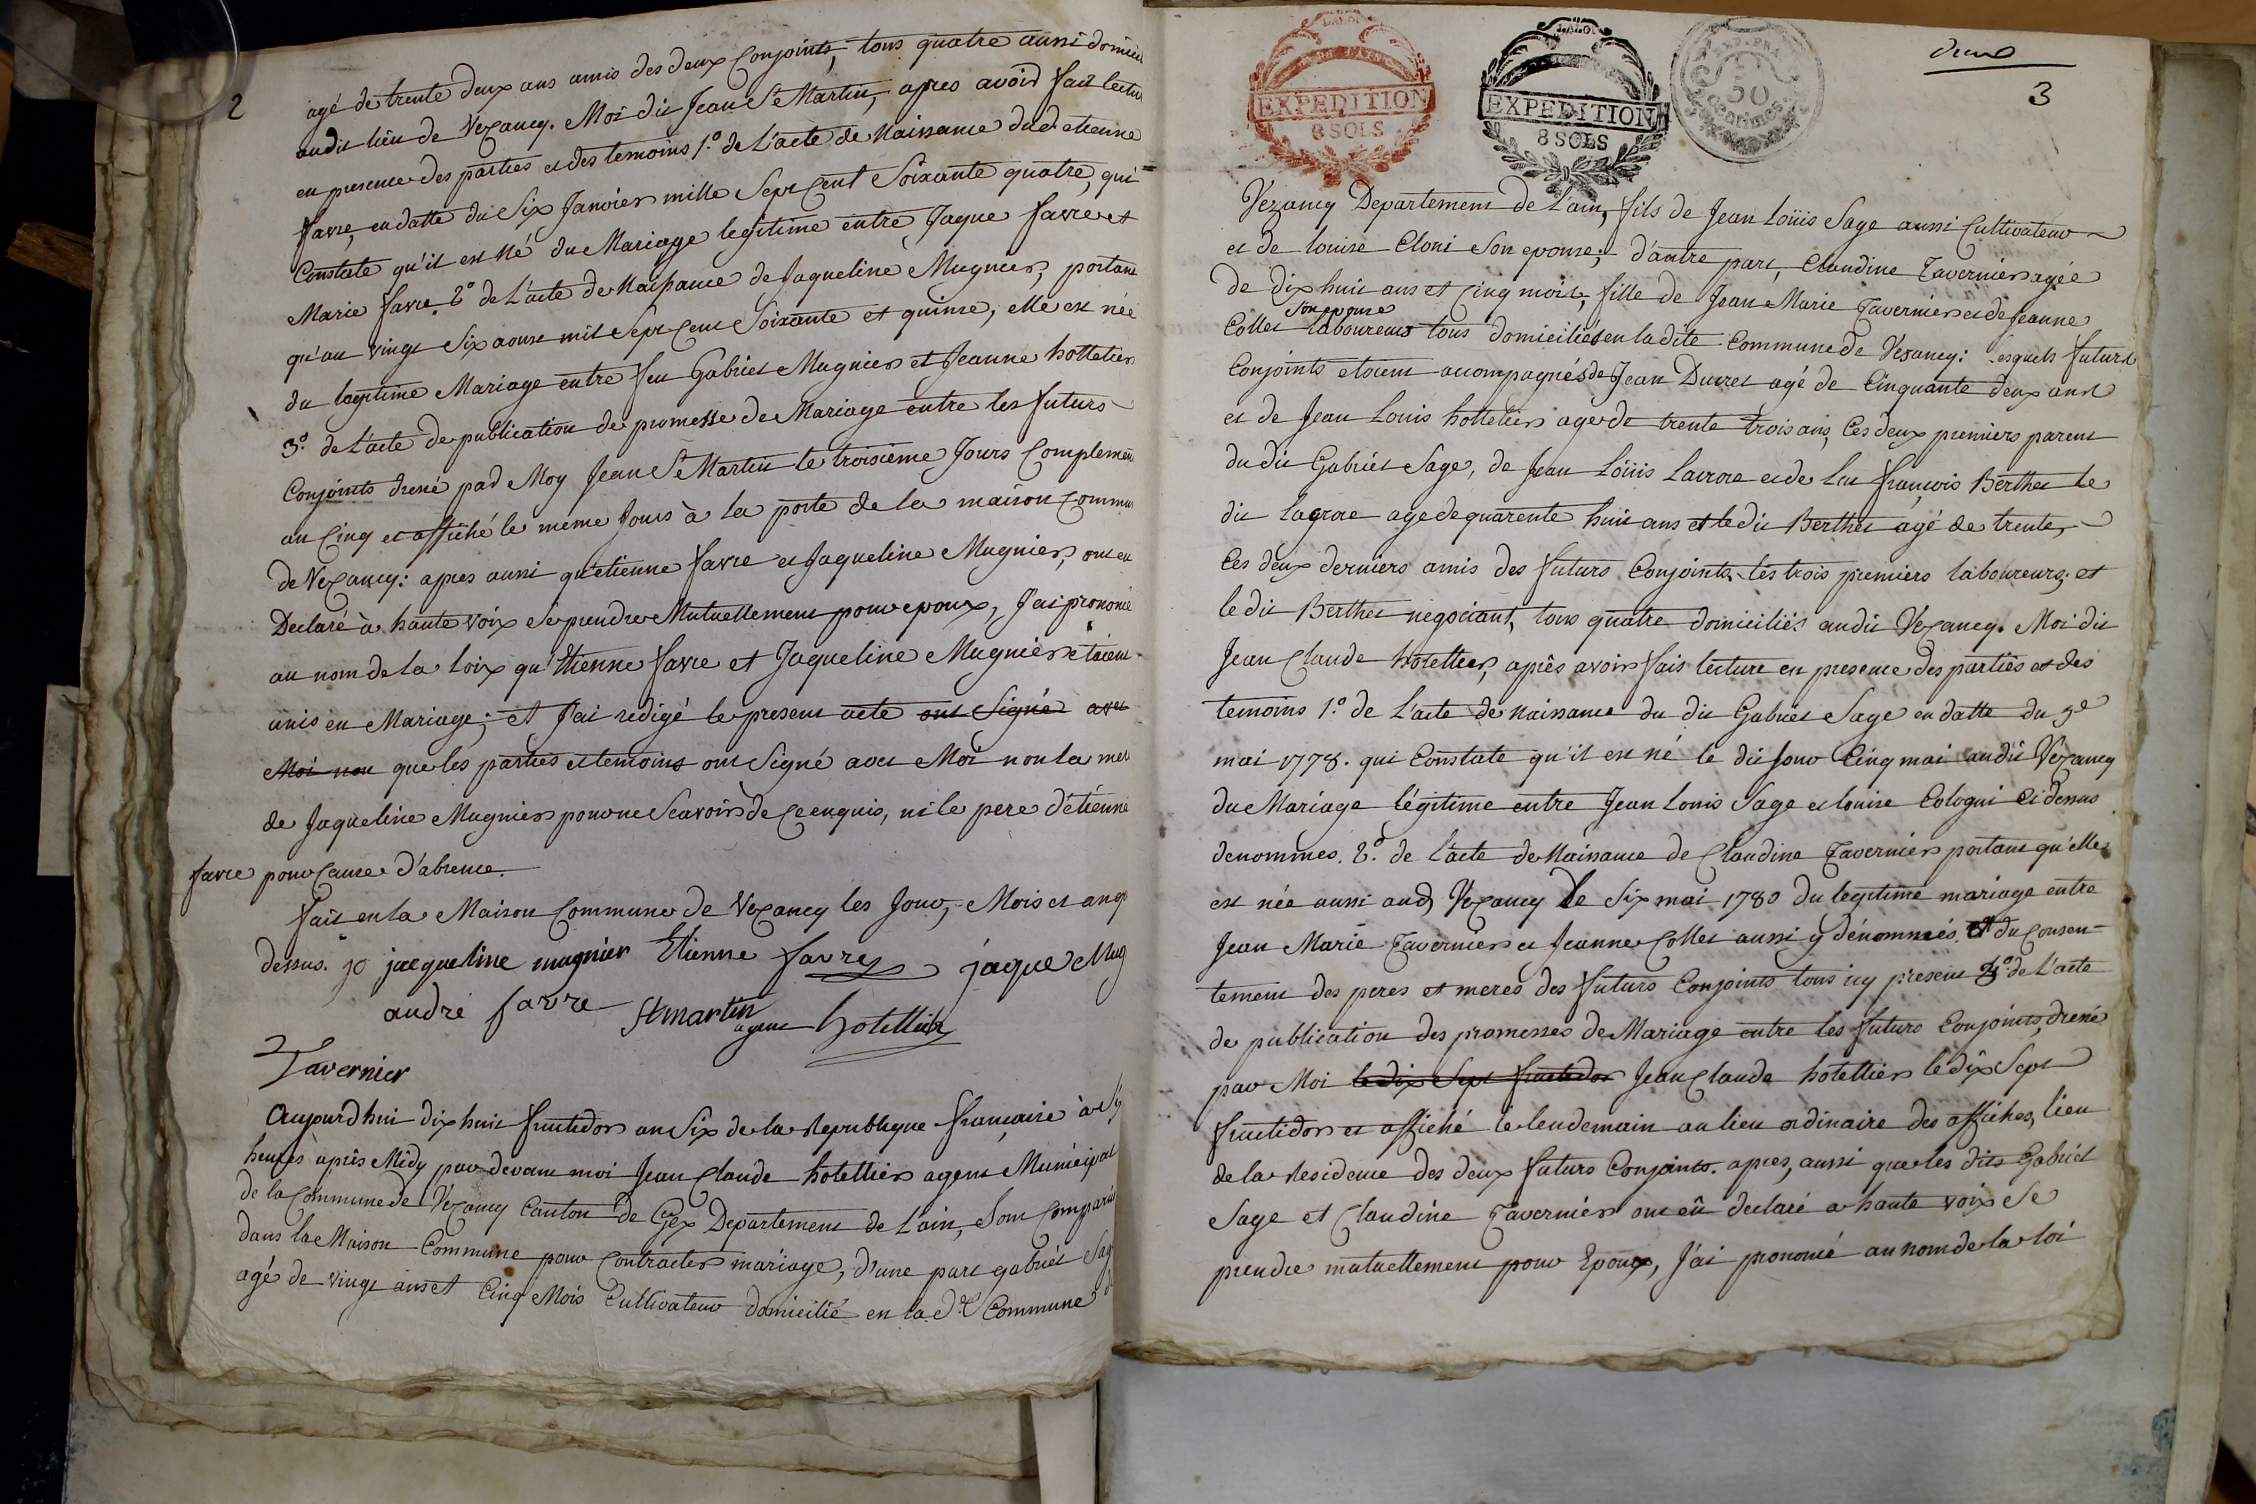 2
agé de trente deux ans amis des deux Conjoints, tous quatre aussi domicil
audit lieu de Vezancy. Moi dit Jean St Martin, apres avoir fait lectur
en presence des parties et des temoins 1.° de L'acte de Naissance dud. etienne
favre, en datte du Six Janvier mille Sept Cent Soixante quatre, qui
Constate qu'il est Né du Mariage legitime entre Jaque favre et
Marie favre. 2° de L'acte de Naissance de Jaqueline Mugnier, portant
qu'au vingt Six aoust mil Sept Cent Soixante et quinse, elle est née
du legitime Mariage entre feu Gabriel Mugnier et Jeanne hottelier
3.° de L'acte de publication de promesse de Mariage entre les futurs
Conjoints dressé par Moy Jean St Martin le troisième Jours Complemen
an Cinq et affiché le meme Jours à la porte de la maison Commu
de Vezancy: apres aussi qu'etienne favre et Jaqueline Mugnier, ont eu
Declaré à haute voix se prendre Mutuellement pour epoux, J'ai prononcé
au nom de la loix qu'Etienne favre et Jaqueline Mugnier etoient
unis en Mariage; et J'ai redigé le present acte ont Signé avec
Moi non que les parties et temoins ont Signé avec Moi non la mer
de Jaqueline Mugnier pour ne Scavoir de Ce enquis, ni le pere d'étienne
favre pour Cause d'absence.
fait en la Maison Commune de Vezancy les Jour, Mois et an q
dessus. jacqueline mugnier Etienne favre jaque Mug
andré favre St martin agent hotellier
2
Tavernier
Aujourd'hui dix huit fructidor an Six de la Republique française à
heures après Midy par devant moi Jean Claude hotellier agent Municipal
de la Commune de Vezancy Canton de Gex Departement de L'ain, Sont Comparus
dans la Maison Commune pour Contracter mariage, d'une part gabriel Sag
agé de vingt ans et Cinq Mois Cultivateur domicilié en la d.te Commune
LA LOI
EXPEDITION
8 SOLS
LA LOI
EXPEDITION
8 SOLS
50
Centimes
deux
3
Vezancy Departement de L'ain, fils de Jean Loüis Sage aussi Cultivateur
et de louise Cloni Son epouse; d'autre part, Claudine Tavernier agée
de dix huit ans et Cinq mois, fille de Jean Marie Tavernier et de Jeanne
Son epouse
Collet laboureur tous domiciliés en la dite Commune de Vezancy: lesquels futurs
Conjoints etoient accompagnés de Jean Duvret agé de Cinquante deux ans
et de Jean Louis hottelier age de trente trois ans, Ces deux premiers parent
du dit Gabriel Sage, de Jean Loüis Lacroe et de françois Berthet le
dit lacroe age de quarente huit ans et le dit Berthet agé de trente,
Ces deux derniers amis des futurs Conjoints, les trois premiers laboureurs, et
le dit Berthet negociant, tous quatre domiciliés audit Vezancy. Moi dit
Jean Claude hotellier, après avoir fait lecture en presence des parties et des
temoins 1.° de L'acte de Naissance du dit Gabriel Sage en datte du 5e
mai 1778. qui Constate qu'il est né le dit Jour Cinq mai audit Vezancy
du Mariage légitime entre Jean Louis Sage et louise Cologni Ci dessus
denommes. 2.° de L'acte de Naissance de Claudine Tavernier portant qu'elle
est née aussi aud. Vezancy le Six mai 1780 du legitime mariage entre
Jean Marie Tavernier et Jeanne Collet aussi y dénommés. et du Consen-
tement des peres et meres des futurs Conjoints tous icy present 3° de L'acte
de publication des promesses de Mariage entre les futurs Conjoints, dressé
par Moi le dix Sept fructidor Jean Claude hotellier le dix Sept
fructidor et affiché le lendemain au lieu ordinaire des affiches, lieu
de la Residence des deux futurs Conjoints. apres, aussi que les dits Gabriel
Sage et Claudine Tavernier ont eû declaré a haute voix Se
prendre mutuellement pour Epoux, J'ai prononcé au nom de la loi